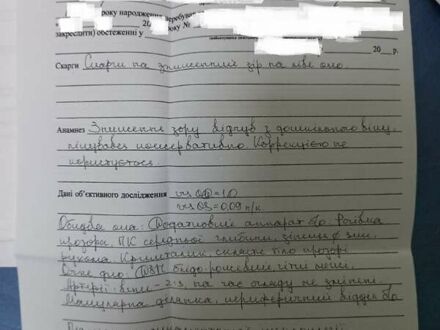 року народження перебував
20 року №
закреслити) обстеженні у
20__р.
Скарги Скарги на знижений зір на ліве око.
Анамнез Зниження зору відчув з дошкільного віку,
лікувався консервативно. Коррекцією не
користується.
Дані об'єктивного дослідження vis OD = 1.0
vis OS = 0.09 н/к
Обидва ока: Додатковий аппарат б/о. Рогівка
прозора, ПК середньої глибини, зіниця
рухома. Кришталик, склисте тіло прозорі
Очне дно: ДЗН блідо-рожевий, чіткі межі,
Артерії: вени - 2:3, на час огляду не змінені.
Макулярна ділянка, периферичний відділ б/о